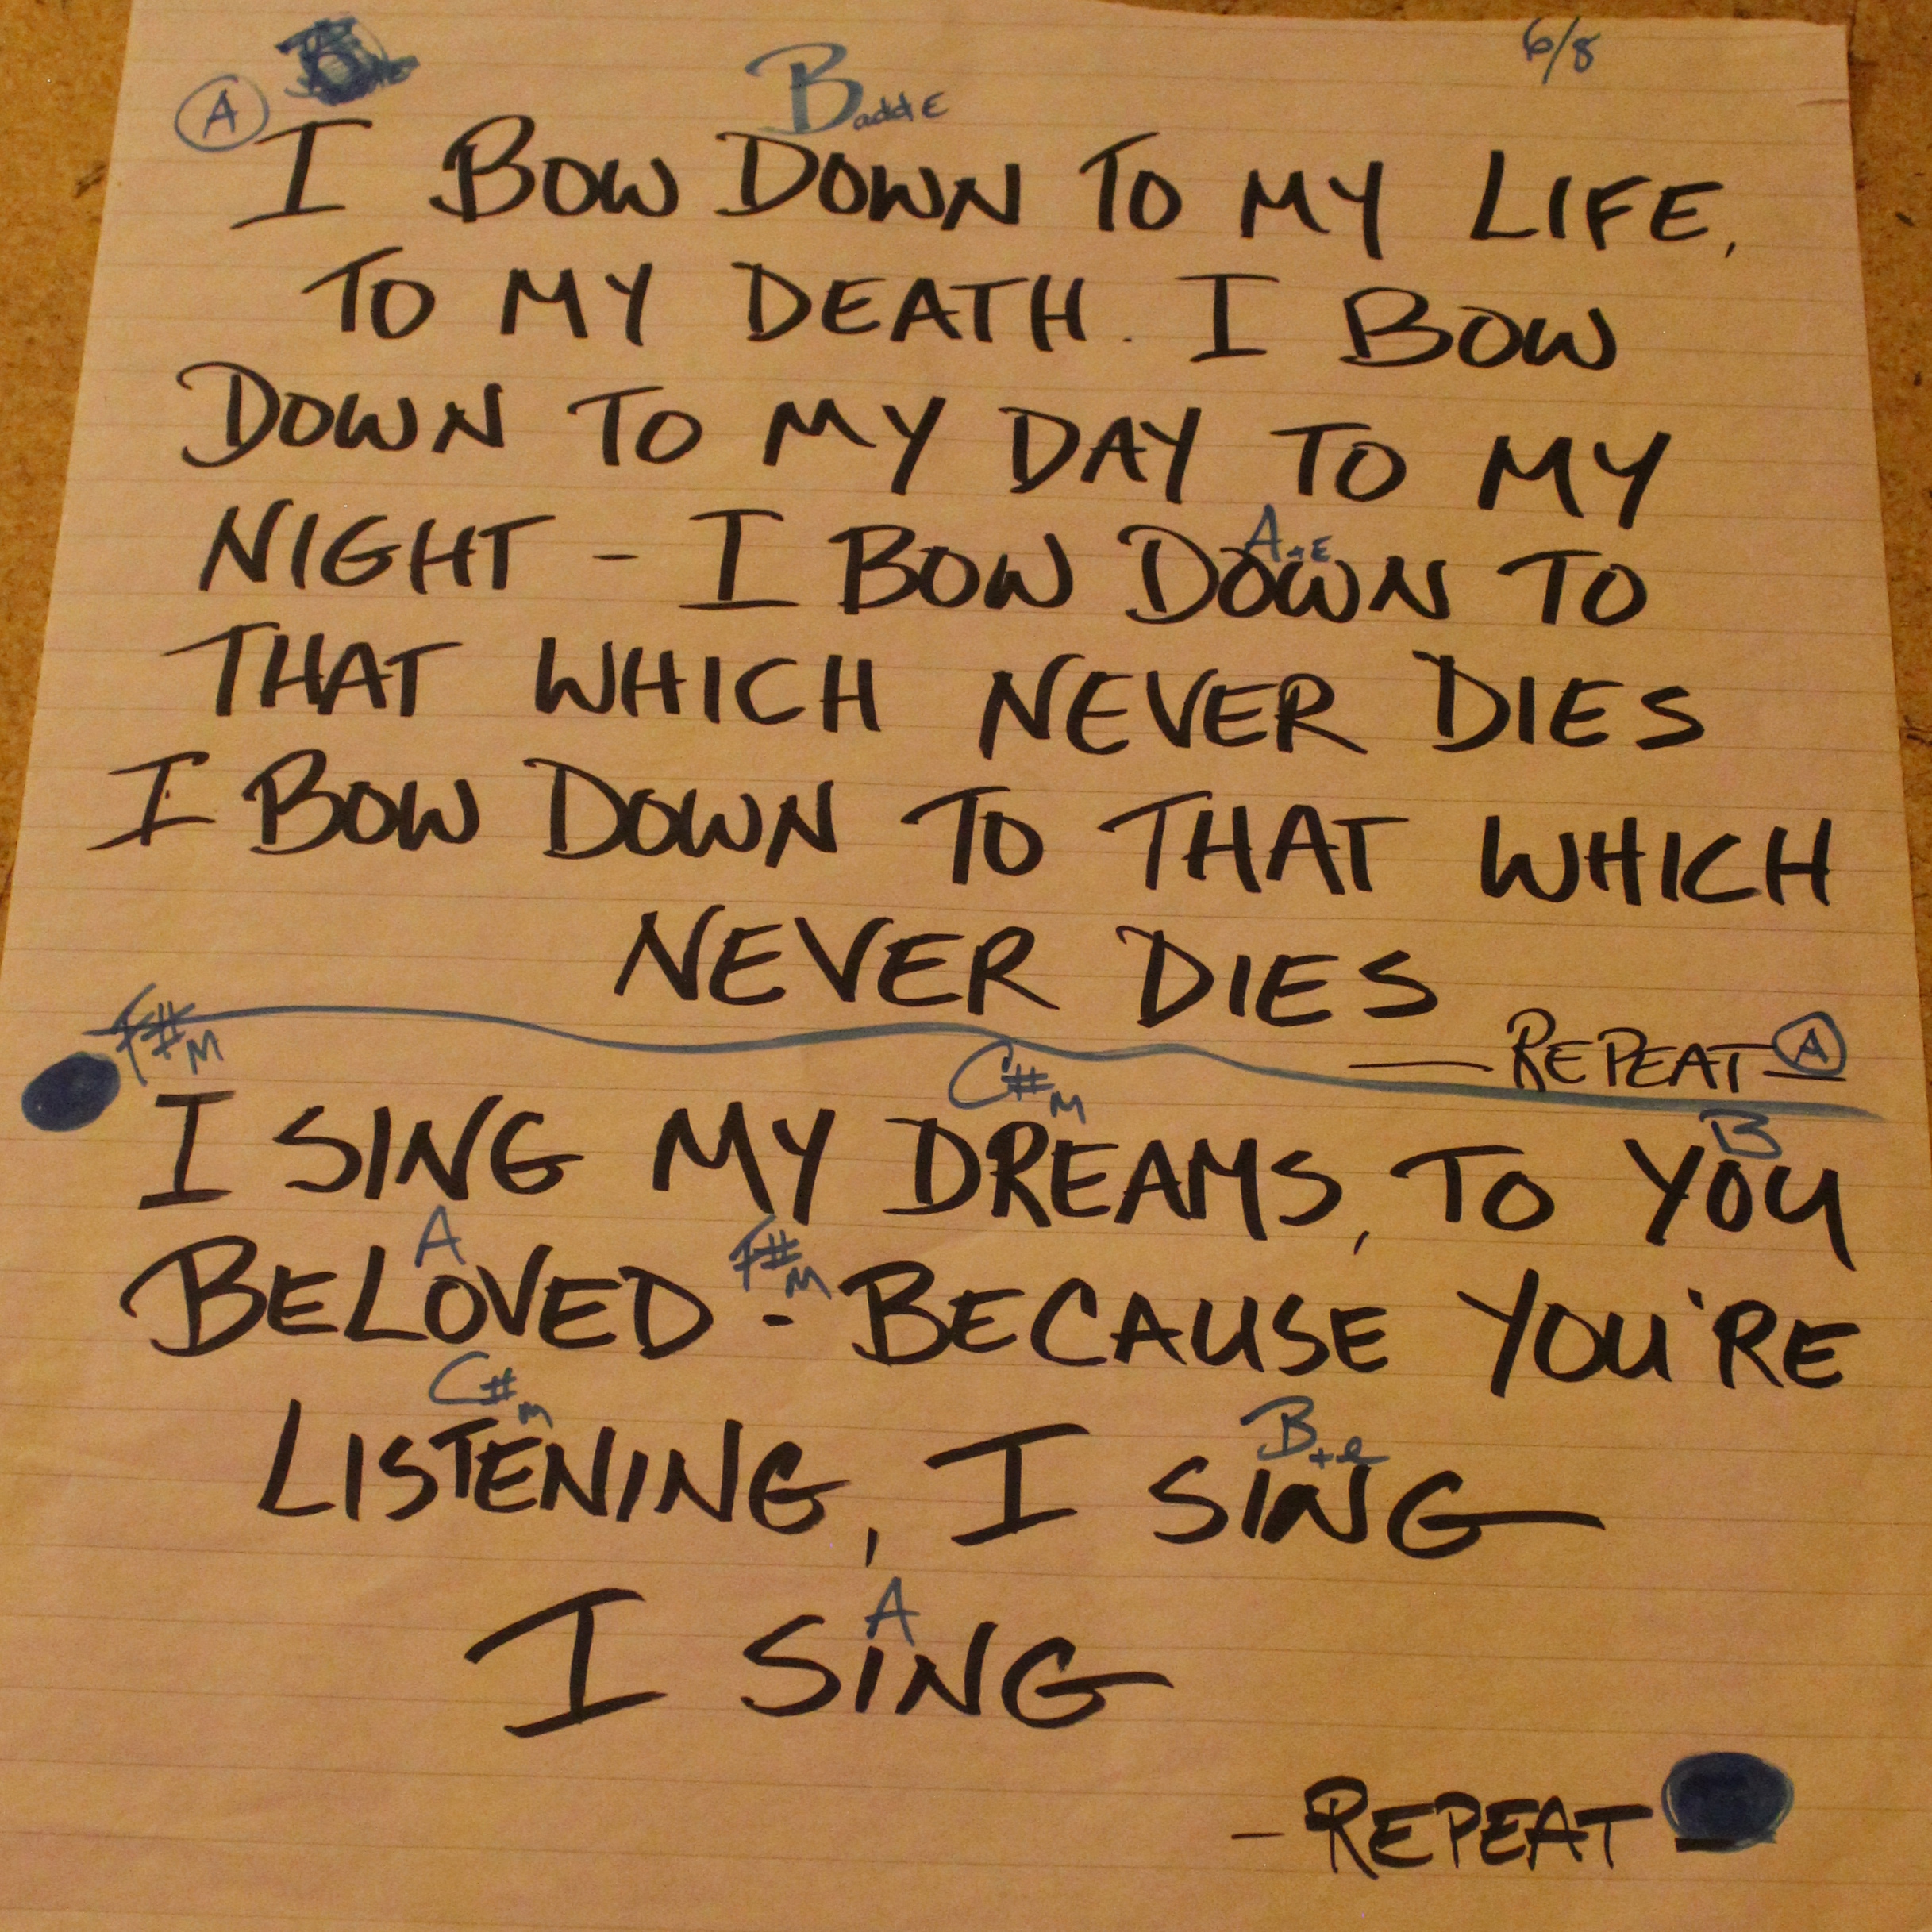 6/8
Ⓐ B Badd E
I BOW DOWN TO MY LIFE,
TO MY DEATH. I BOW
DOWN TO MY DAY TO MY
A+E
NIGHT - I BOW DOWN TO
THAT WHICH NEVER DIES
I BOW DOWN TO THAT WHICH
NEVER DIES
— REPEAT Ⓐ
F#M C#M B
I SING MY DREAMS, TO YOU
A F#M
BELOVED - BECAUSE YOU'RE
C#m B+e
LISTENING, I SING
A
I SING
- REPEAT